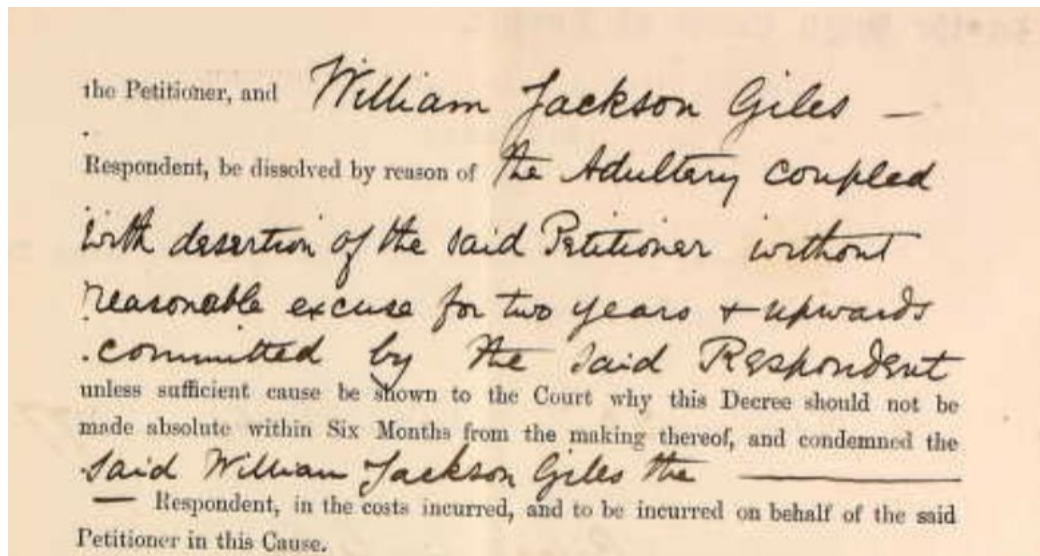 the Petitioner, and William Jackson Giles —
Respondent, be dissolved by reason of the Adultery coupled
with desertion of the said Petitioner without
reasonable excuse for two years + upwards
committed by the said Respondent
unless sufficient cause be shown to the Court why this Decree should not be
made absolute within Six Months from the making thereof, and condemned the
said William Jackson Giles the —
— Respondent, in the costs incurred, and to be incurred on behalf of the said
Petitioner in this Cause.